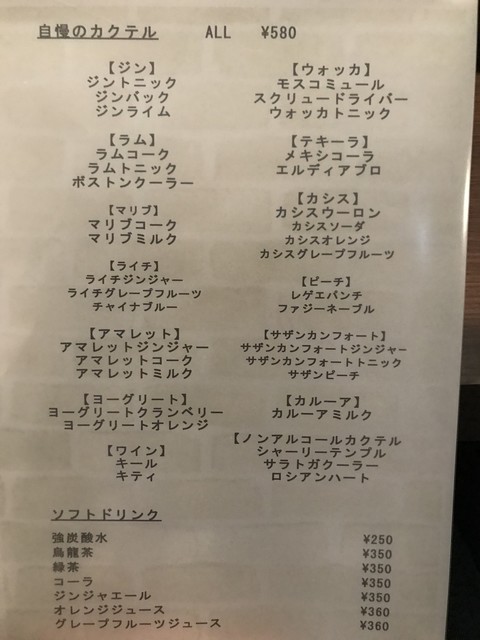 自慢のカクテル ALL ¥580
【ジン】
ジントニック
ジンバック
ジンライム
【ラム】
ラムコーク
ラムトニック
ボストンクーラー
【マリブ】
マリブコーク
マリブミルク
【ライチ】
ライチジンジャー
ライチグレープフルーツ
チャイナブルー
【アマレット】
アマレットジンジャー
アマレットコーク
アマレットミルク
【ヨーグリート】
ヨーグリートクランベリー
ヨーグリートオレンジ
【ワイン】
キール
キティ
【ウォッカ】
モスコミュール
スクリュードライバー
ウォッカトニック
【テキーラ】
メキシコーラ
エルディアブロ
【カシス】
カシスウーロン
カシスソーダ
カシスオレンジ
カシスグレープフルーツ
【ピーチ】
レゲエパンチ
ファジーネーブル
【サザンカンフォート】
サザンカンフォートジンジャー
サザンカンフォートトニック
サザンピーチ
【カルーア】
カルーアミルク
【ノンアルコールカクテル
シャーリーテンプル
サラトガクーラー
ロシアンハート
ソフトドリンク
強炭酸水 ¥250
烏龍茶 ¥350
緑茶 ¥350
コーラ ¥350
ジンジャエール ¥350
オレンジジュース ¥360
グレープフルーツジュース ¥360